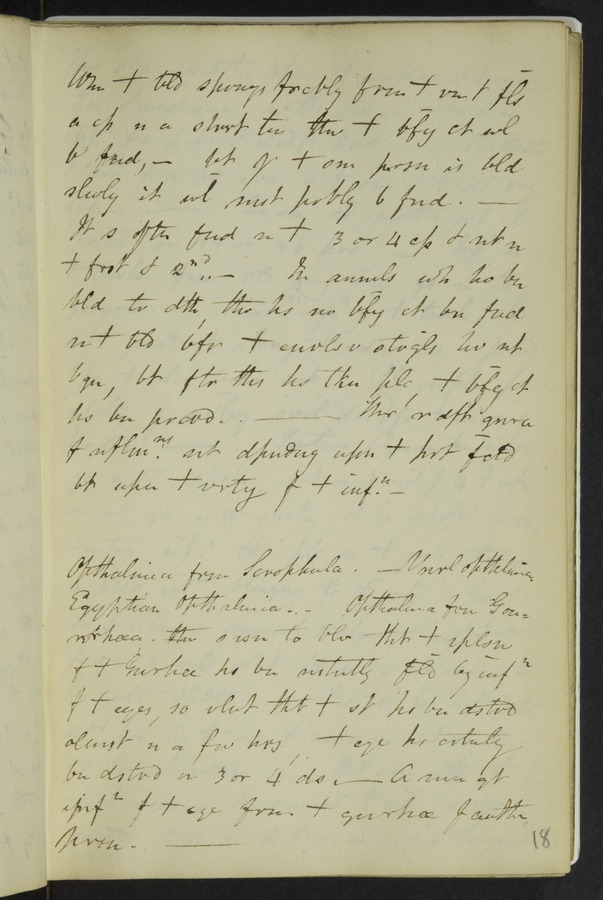 Whn + bld spurngs forcbly from + vn t fls
a cp n a short tim thr + bfy ct wl
b fnd, — bt if + sm persn is bld
slwly it wl not probly b fnd. —
It s oftn fnd n + 3 or 4 cp & nt n
+ frst & 2nd.. — In anmls wh hv bn
bld to dth, thr hs no bfy ct bn fnd
n + bld bfr + cnvlsv strgls hv nt
bgn, bt ftr ths hs tkn plc, + bfy ct
hs bn prcvd. — Thr r dfft
f nflm.ns nt dpndng upon + prt fctd
bt upn + vrty f + inf.n —
Opthalmia from Scrophula. — Vnrl opthalmia
Egyptian Opthalmia. . - Opthalmia from Gon=
orrhœa. thr s rsn to blv tht + 
f + Gnrhœ hs bn fld by infn
f + eyes, so tht + st hs bn dstrd
almost n a few hrs, + eye hs
bn dstrd in 3 or 4 ds. — A mn gt
infn f + eye from + gnrhœ f anthr
prsn. —
18